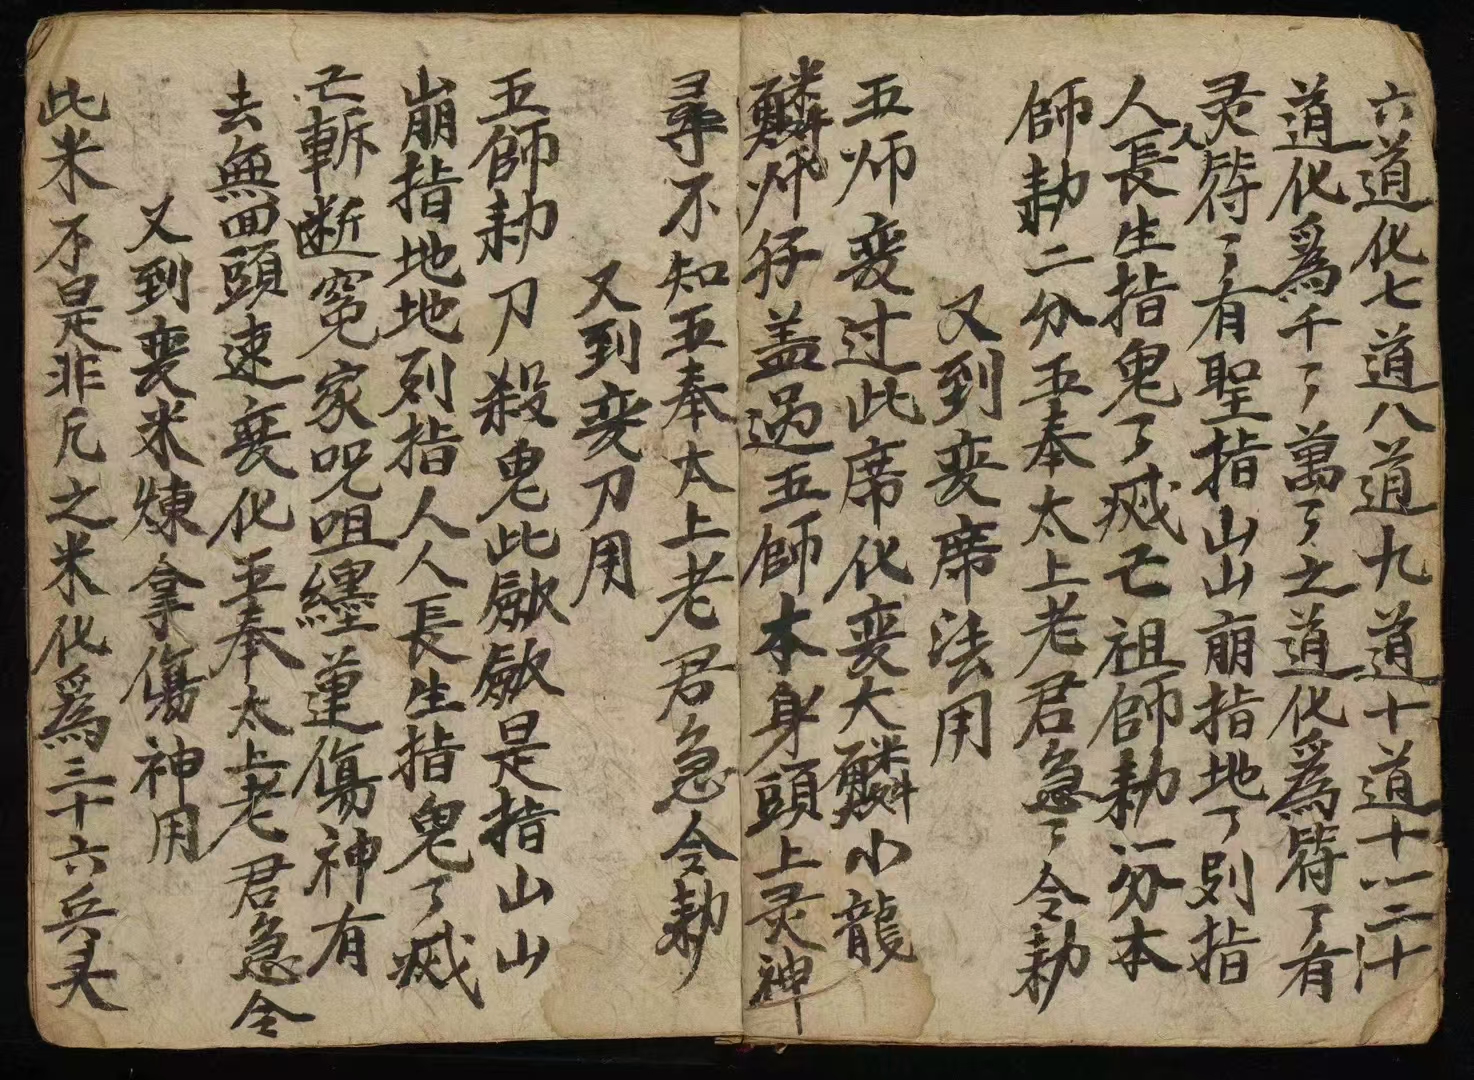 六道化七道八道九道十道十一二十
道化爲千了了萬了之道化爲符了有
灵符了了有聖指山山崩指地了列指
人人長生指鬼了滅亡祖師勅一分本
師勅二分五奉太上老君急了令勅
又到变席法用
五师变过此席化变大麟小龍
麟师仔盖过五師本身頭上灵神
尋不知五奉太上老君急令勅
又到变刀用
五師勅刀殺鬼此歛歛是指山山
崩指地地列指人人長生指鬼了滅
亡斬断冤家呪咀纏連傷神有
去無回頭速变化五奉太上老君急令
又到变米煉拿傷神用
此米不是非凡之米化爲三十六兵头